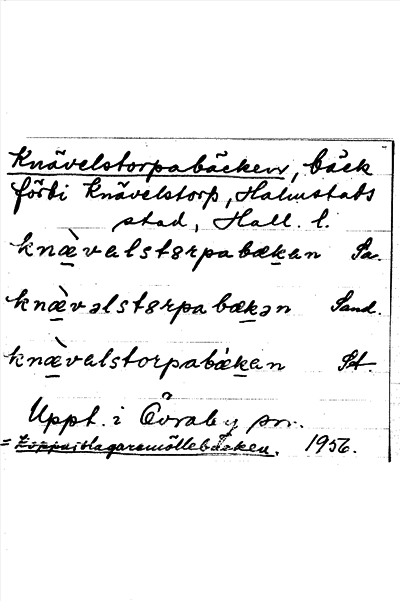 Knävelstorpabäcken, bäck
förbi Knävelstorp, Halmstads
stad, Hall. l.
knæ̀valstɵrpabækan Sa.
knæ̀vəlstɵrpabækən Sand.
knæ̀valstorpabækan St.
Uppt. i Övraby sn.
= Koppaslagaremöllebäcken. 1956.